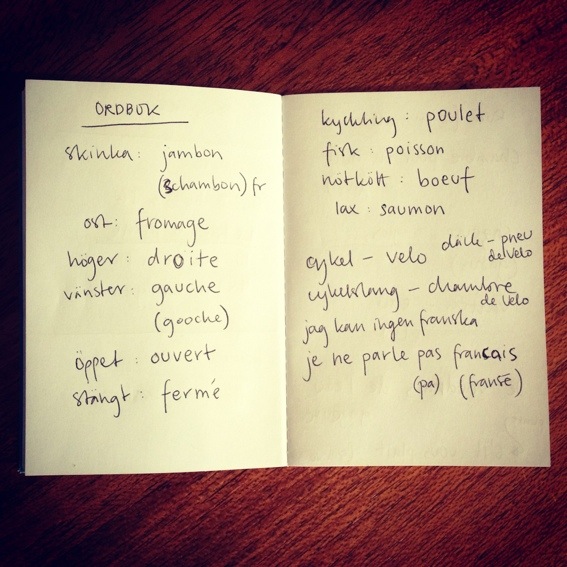 ORDBOK
skinka: jambon
(schambon) fr
ost: fromage
höger: droite
vänster: gauche
(gooche)
öppet: ouvert
stängt: fermé
kyckling: poulet
fisk: poisson
nötkött: boeuf
lax: saumon
däck - pneu
de velo
cykel - velo
cykelslang - chambre
de velo
jag kan ingen franska
je ne parle pas francais
(pa) (fransē)